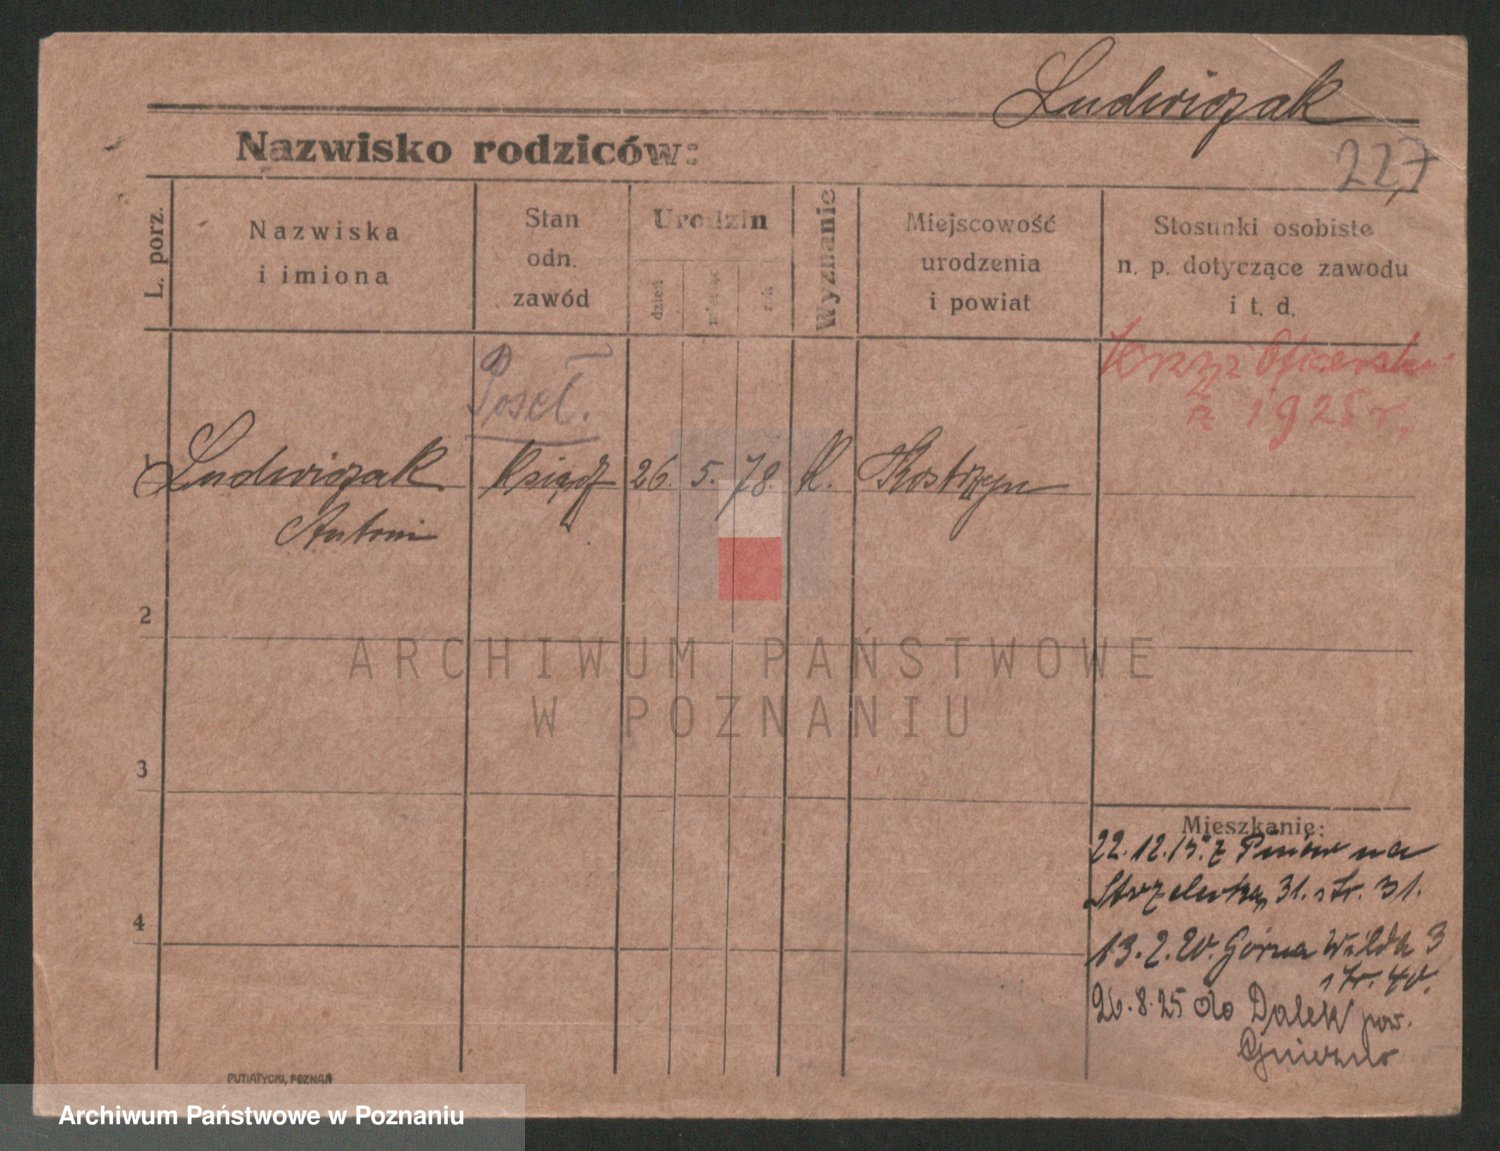 Ludwiczak
Nazwisko rodziców:
227
L. porz.
Nazwiska
i imiona
Stan
odn.
zawód
Urodzin
dzień
miesiąc
rok
Wyznanie
Miejscowość
urodzenia
i powiat
Stosunki osobiste
n. p. dotyczące zawodu
i t. d.
Krzyż Oficerski
z 1925 r.
Poseł.
1 Ludwiczak ksiądz 26. 5. 78. k. Kostrzyn
Antoni
2
ARCHIWUM PAŃSTWOWE
W POZNANIU
3
4
Mieszkanie:
22.12.15. z Pniew na
31. str. 31.
13.2.20. Górna Wilda 3
str. 40.
26.8.25 do Dalek pow.
Gniezno
PUTIATYCKI, POZNAŃ
Archiwum Państwowe w Poznaniu